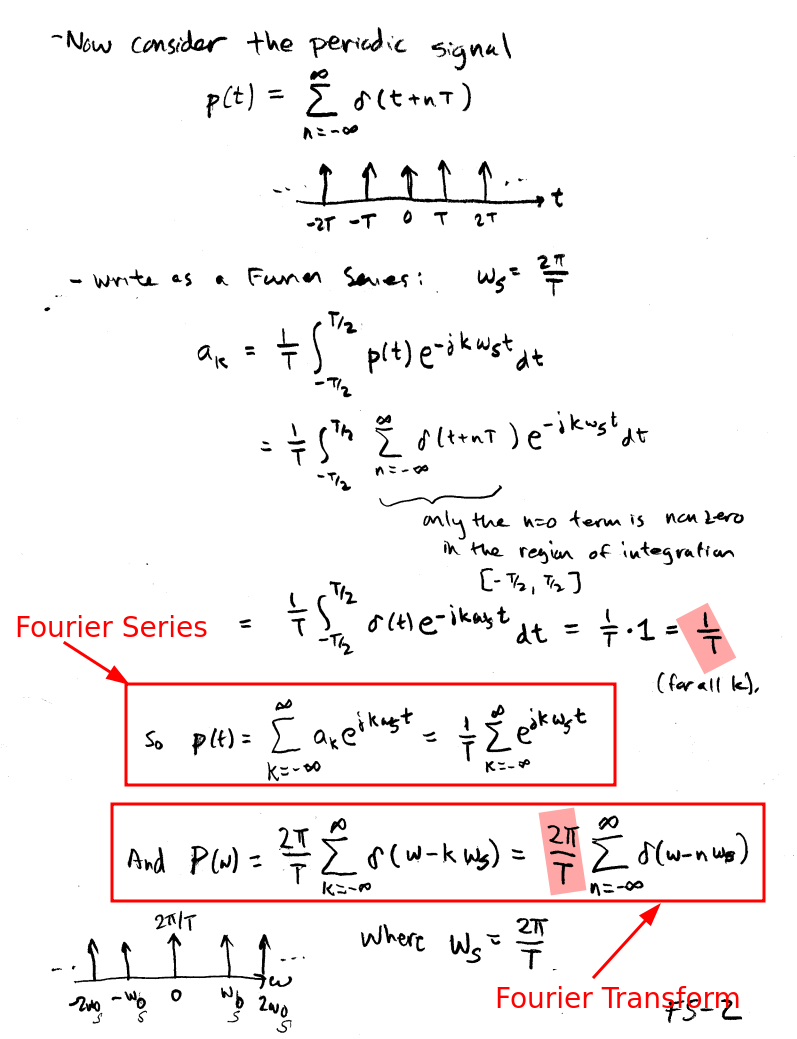 -Now consider the periodic signal
p(t) = ∞ Σ n=-∞ δ(t+nT)
... ...
t
-2T -T 0 T 2T
- write as a Fourier Series: ws = 2π/T
ak = 1/T ∫_{-T/2}^{T/2} p(t) e^{-jkwst} dt
= 1/T ∫_{-T/2}^{T/2} Σ_{n=-∞}^{∞} δ(t+nT) e^{-jkwst} dt
only the n=0 term is nonzero
in the region of integration
[-T/2, T/2]
= 1/T ∫_{-T/2}^{T/2} δ(t) e^{-jkwst} dt = 1/T · 1 = 1/T
Fourier Series
(for all k).
So p(t) = Σ_{k=-∞}^{∞} ak e^{jkwst} = 1/T Σ_{k=-∞}^{∞} e^{jkwst}
And P(w) = 2π/T Σ_{k=-∞}^{∞} δ(w-kws) = 2π/T Σ_{n=-∞}^{∞} δ(w-nws)
2π/T
where ws = 2π/T
... ...
w
-2ws -ws 0 ws 2ws
Fourier Transform
FS-2